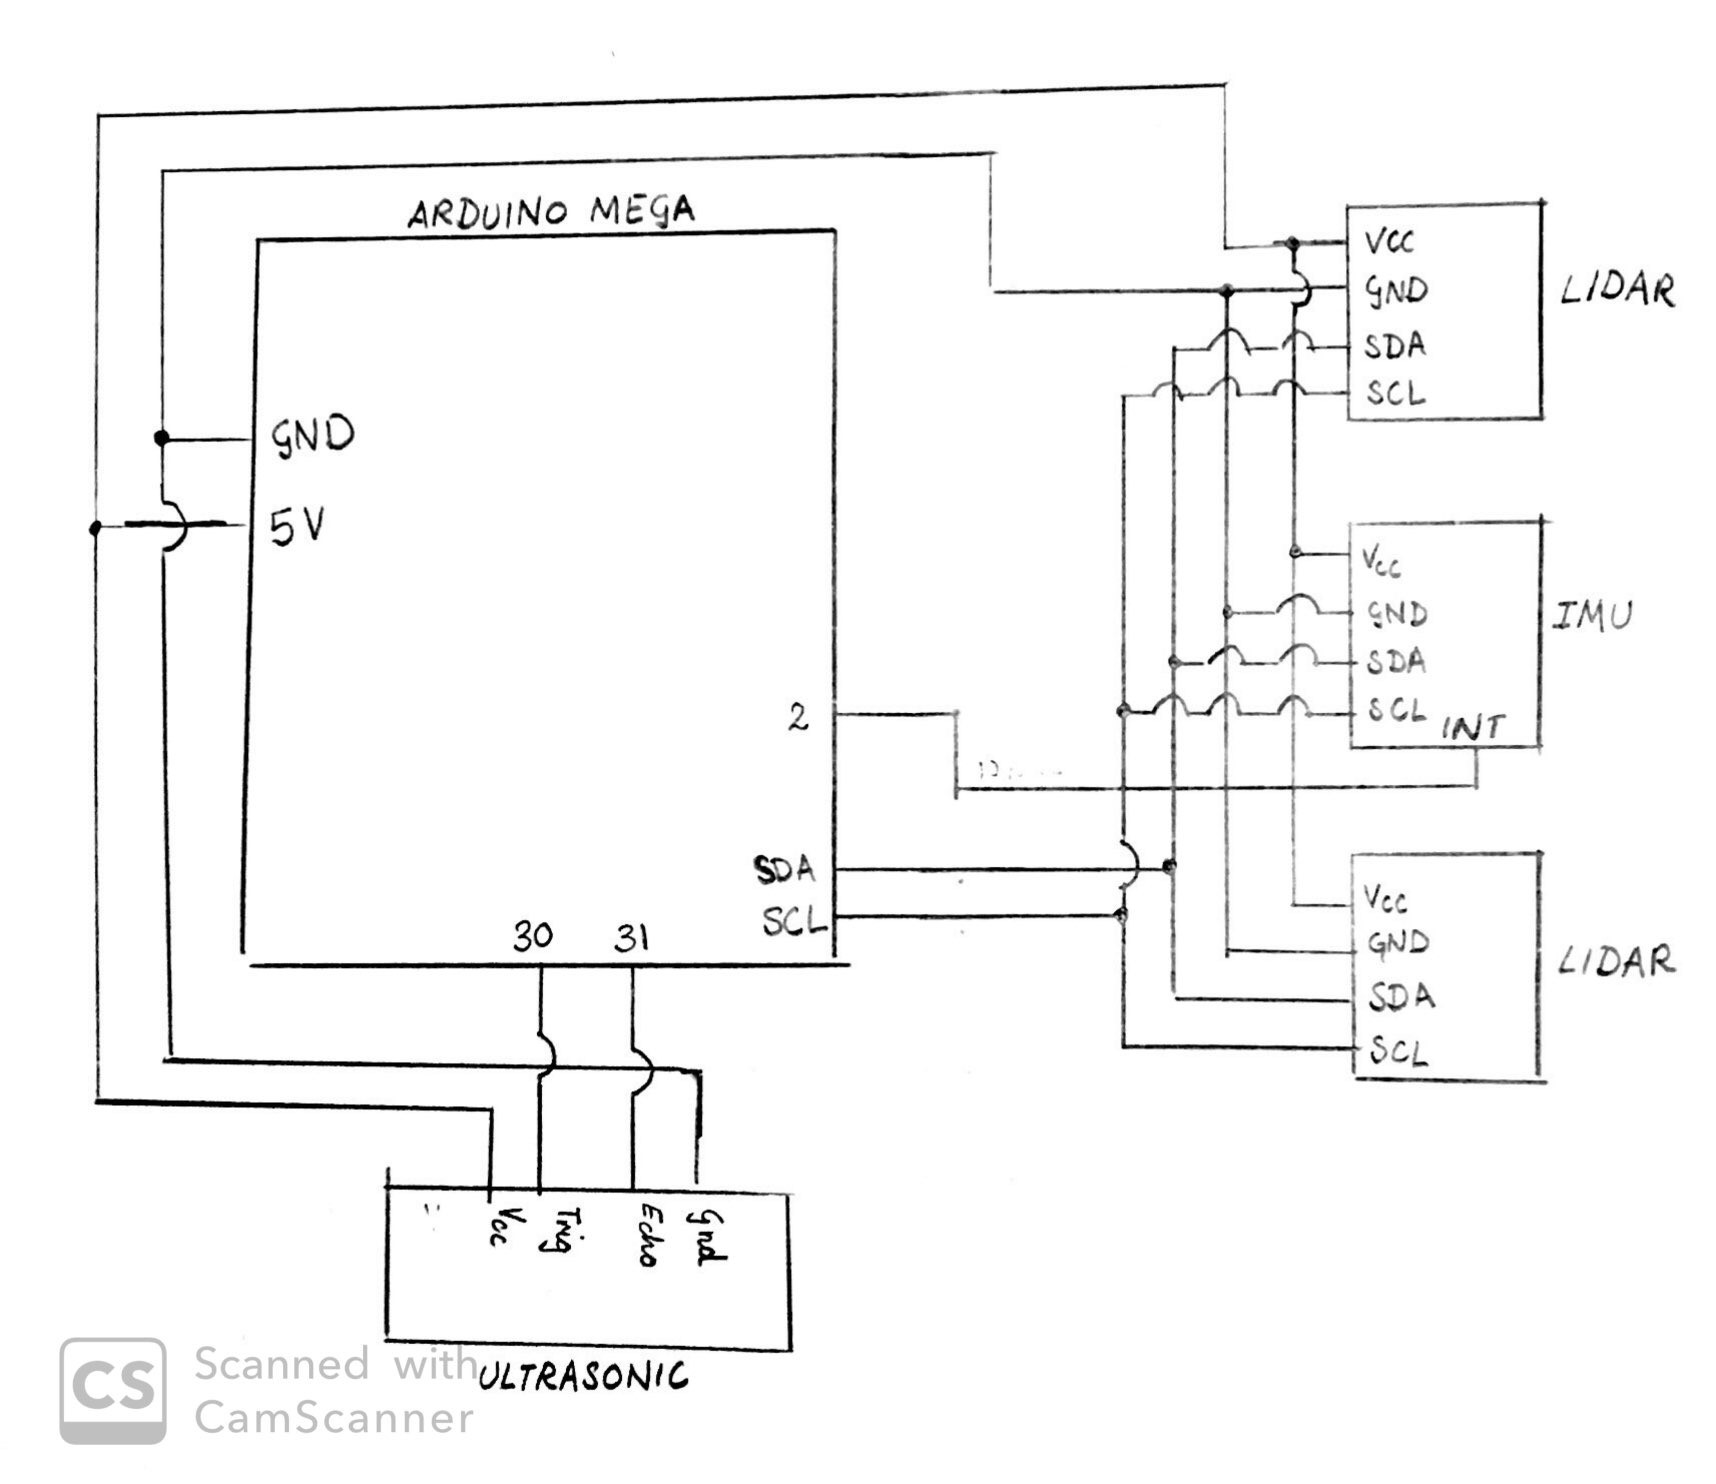 ARDUINO MEGA
GND
5V
2
SDA
SCL
30
31
VCC
GND
SDA
SCL
LIDAR
Vcc
GND
SDA
SCL
INT
IMU
Vcc
GND
SDA
SCL
LIDAR
Vcc
Trig
Echo
Gnd
ULTRASONIC
CS
Scanned with
CamScanner